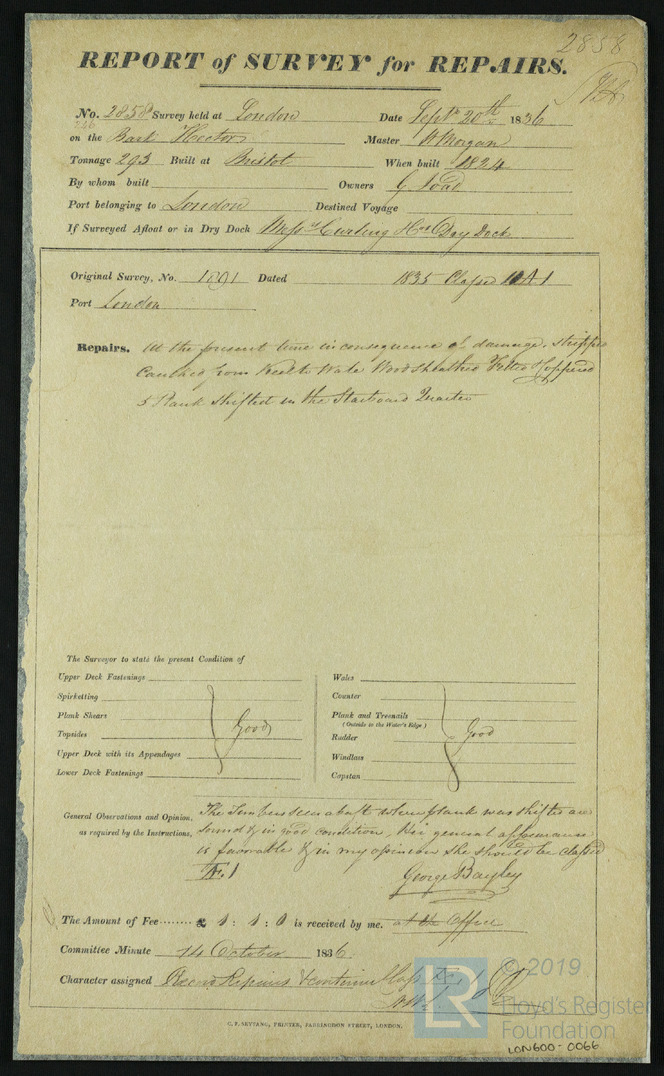 2858
REPORT of SURVEY for REPAIRS.
No. 2858 Survey held at London Date Septr 20th 1836
on the Bark Hector Master W Morgan
Tonnage 293 Built at Bristol When built 1824
By whom built Owners G. Soad
Port belonging to London Destined Voyage
If Surveyed Afloat or in Dry Dock Messrs Curling & Cos Dry Dock
Original Survey, No. 1891 Dated 1835 Classed A1
Port London
Repairs. At the present time in consequence of damage, stripped
Caulked from Keel to Wale Wood sheathed Felted & Coppered
5 Plank shifted in the Starboard Quarter
The Surveyor to state the present Condition of
Upper Deck Fastenings
Spirketting
Plank Shears
Topsides
Upper Deck with its Appendages
Lower Deck Fastenings
Good
Wales
Counter
Plank and Treenails
(Outside to the Water's Edge)
Rudder
Windlass
Capstan
Good
General Observations and Opinion, The Timbers seen abaft where plank was shifted are
as required by the Instructions, sound & in good condition, Her general appearance
is favorable & in my opinion she should be classed
Æ.1
George Bayley
The Amount of Fee £ 1 : 1 : 0 is received by me, at the Office
Committee Minute 14 October 1836
Character assigned Record Repairs & continue Class Æ 1
C. F. SEYFANG, PRINTER, FARRINGDON STREET, LONDON.
LR
© 2019
Lloyd's Register
Foundation
LON600-0066